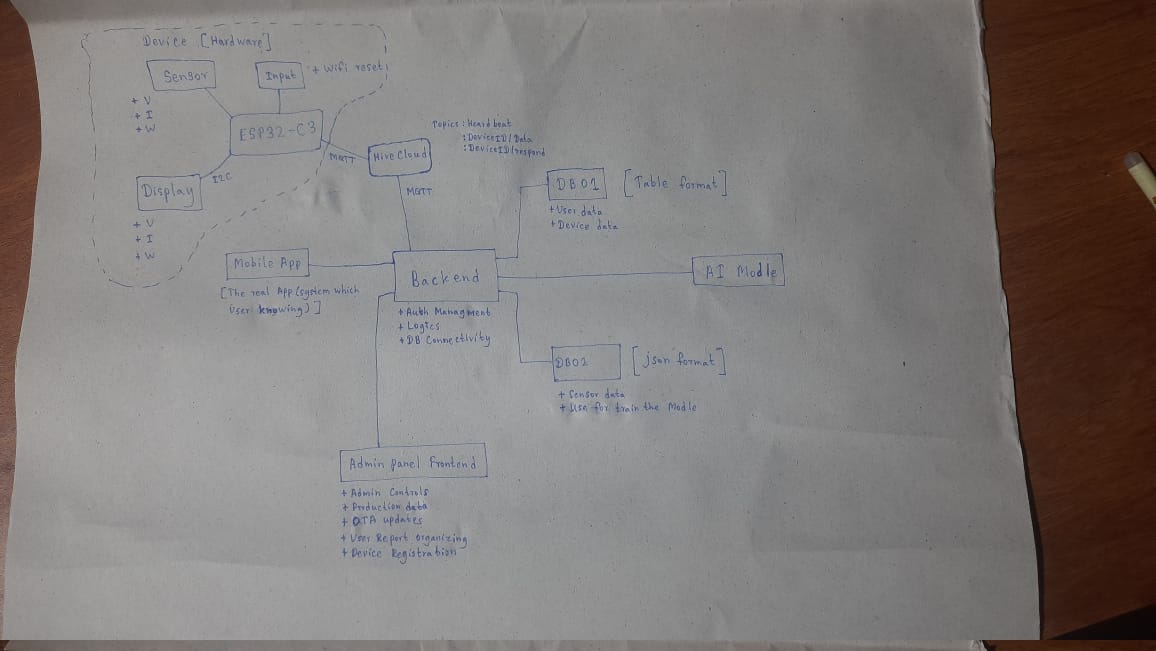 Device [Hardware]
Sensor
Input
+ Wifi reset
+ V
+ I
+ W
ESP32-C3
MQTT
Hive Cloud
Topics : Heard beat
: DeviceID/Data
: DeviceID/respond
I2C
Display
+ V
+ I
+ W
MQTT
DB01
[Table format]
+ User data
+ Device data
Mobile App
[The real App (system which
User knowing)]
Backend
+ Auth Managment
+ Logics
+ DB Connectivity
AI Modle
DB02
[json format]
+ Sensor data
+ Use for train the Modle
Admin panel frontend
+ Admin Controls
+ Production data
+ OTA updates
+ User Report organizing
+ Device Registration